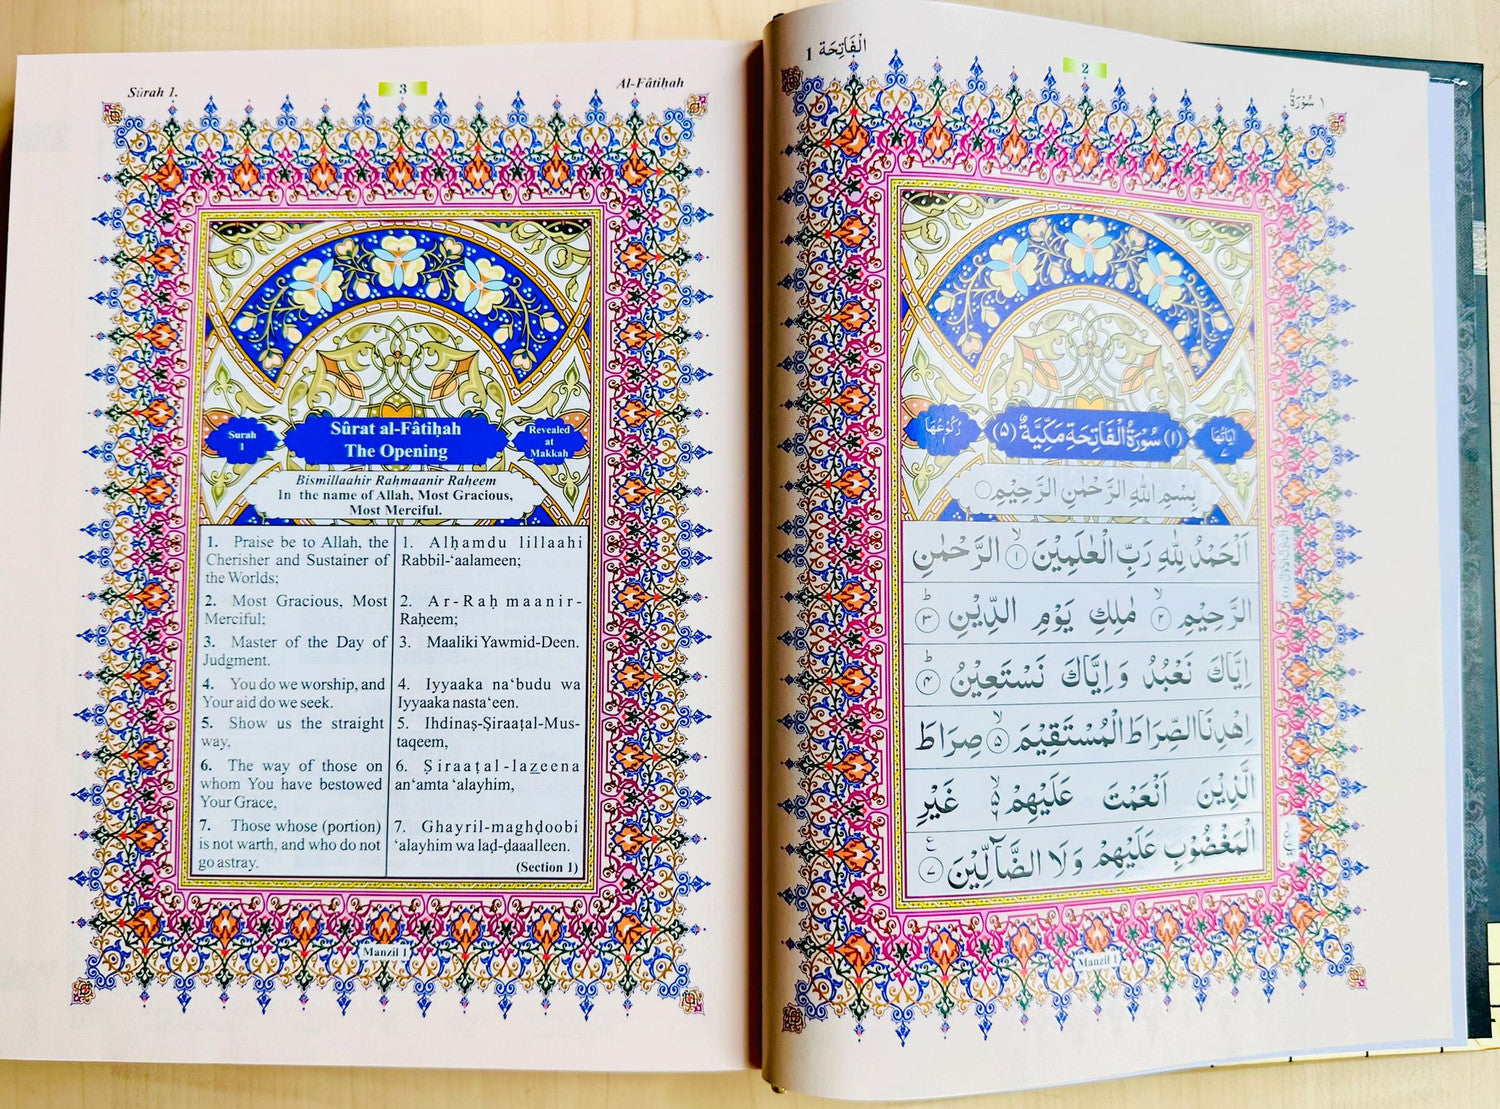 Sûrah 1.
3
Al-Fâtiḥah
Sûrat al-Fâtiḥah
The Opening
Surah
1
Revealed
at
Makkah
Bismillaahir Raḥmaanir Raḥeem
In the name of Allah, Most Gracious,
Most Merciful.
1. Praise be to Allah, the
Cherisher and Sustainer of
the Worlds;
2. Most Gracious, Most
Merciful;
3. Master of the Day of
Judgment.
4. You do we worship, and
Your aid do we seek.
5. Show us the straight
way,
6. The way of those on
whom You have bestowed
Your Grace,
7. Those whose (portion)
is not warth, and who do not
go astray.
1. Alḥamdu lillaahi
Rabbil-‘aalameen;
2. Ar-Raḥmaanir-
Raḥeem;
3. Maaliki Yawmid-Deen.
4. Iyyaaka na‘budu wa
Iyyaaka nasta‘een.
5. Ihdinaṣ-Ṣiraaṭal-Mus-
taqeem,
6. Ṣiraaṭal-lazeena
an‘amta ‘alayhim,
7. Ghayril-maghḍoobi
‘alayhim wa laḍ-ḍaaalleen.
(Section 1)
Manzil 1
الْفَاتِحَة 1
2
١ سُوْرَةُ
اٰيَاتُهَا ٧
(١) سُوْرَةُ الْفَاتِحَةِ مَكِّيَّةٌ (٥)
رُكُوْعُهَا ١
بِسْمِ اللّٰهِ الرَّحْمٰنِ الرَّحِيْمِ
اَلْحَمْدُ لِلّٰهِ رَبِّ الْعٰلَمِيْنَ ۙ‏﴿۱﴾ الرَّحْمٰنِ
الرَّحِيْمِ ۙ‏﴿۲﴾ مٰلِكِ يَوْمِ الدِّيْنِ ؕ‏﴿۳﴾
اِيَّاكَ نَعْبُدُ وَاِيَّاكَ نَسْتَعِيْنُ ؕ‏﴿۴﴾
اِهْدِنَا الصِّرَاطَ الْمُسْتَقِيْمَ ۙ‏﴿۵﴾ صِرَاطَ
الَّذِيْنَ اَنْعَمْتَ عَلَيْهِمْ ۙ۬‏﴿۶﴾ غَيْرِ
الْمَغْضُوْبِ عَلَيْهِمْ وَلَا الضَّآلِّيْنَ ‏﴿۷﴾ ع
Manzil 1